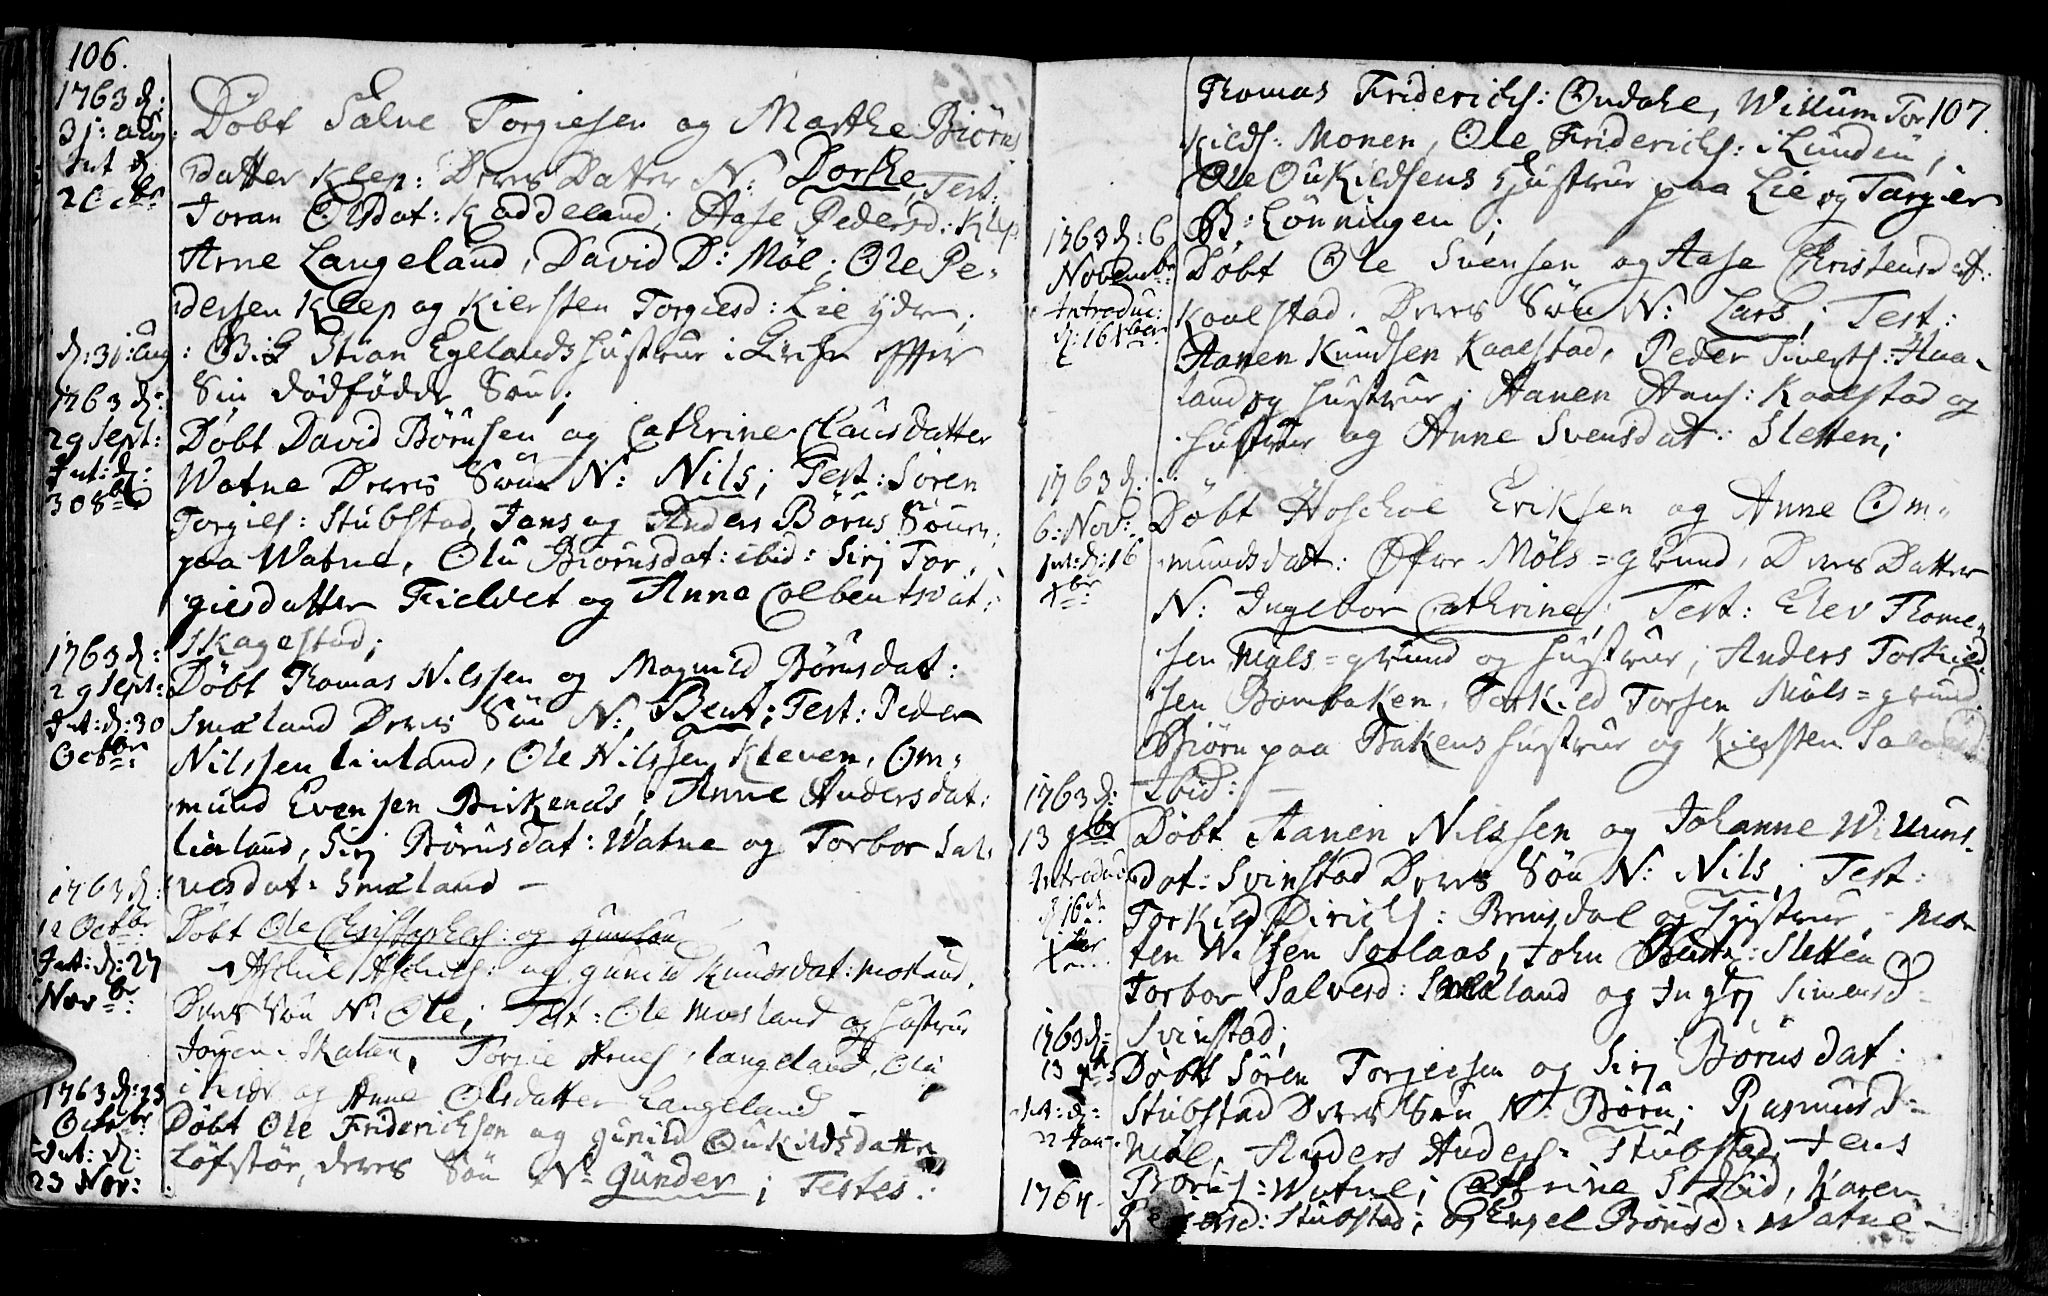 106.
1763 d:
31: aug:
Int d
2 Octbr
Döbt Salve Torgiesen og Marthe Biörns
datter Klep: Deres Datter N: Dorthe, Test:
Joran Olsdat: Kaddeland; Aase Pedersd: Klep
Arne Langeland, David D: Möl; Ole Pe-
dersen Klep og Kiersten Torgiesd: Lie ydre;
d: 31: aug: Gik Stian Egelands Hustrue i Kirche effter
Sin dödfödde Sön;
1763 d:
29 Sept:
Int: d:
30 8br
Döbt David Börnsen og Cathrine Clausdatter
Watne Deres Sön N: Nils; Test: Sören
Torgies: Stubstad, Jens og Anders Börns Söner
paa Watne, Olu Biörnsdat: ibid: Sirj Tor-
giesdatter Fieldet og Anne Colbentsdat:
Skagestad;
1763 d:
29 Sept:
Int: d: 30
Octbr:
Döbt Thomas Nilssen og Magnild Börnsdat:
Smæland Deres Sön N: Bent; Test: Peder
Nilssen Linland, Ole Nilssen Kleven, Om-
mund Evensen Birkenes; Anne Andersdat:
Linland, Sirj Börnsdat: Watne og Torbor Sal-
vesdat: Smæland -
1763 d:
12 Octbr
Int: d: 27
Novbr:
Döbt Ole Christophers: og
og gunild Knudsdat: Mosland,
Deres Sön N: Ole; Test: Ole Mosland og Hustrue
Jörgen Torgie Arnes: Langeland, Ole
og Anne Olsdatter Langeland -
1763 d: 23
Octobr
Int: d:
23 Nov:
Döbt Ole Friderichsen og Gunild Oukildsdatter
Löfstör, deres Sön N: Gunder; Testes:
107.
Thomas Friderichs: Ondahl, Willum Tor
kilds: Monen, Ole Friderichs: i Lunden,
Ole Oukildsens Hustrue paa Lie og Targier
B: Lönningen;
1763 d: 6
Novembr
Introduc:
d: 16 Xber
Döbt Ole Svensen og Aase Christensdat:
Kaalstad. Deres Sön N: Lars; Test:
Aanen Knudsen Kaalstad, Peder Siverts: Haa-
land og Hustrue; Aanen Hans: Kaalstad og
Hustrue og Anne Svensdat: Sletten;
1763 d:
6: Nov:
Int: d: 16
Xbr:
Döbt Hoschol Eriksen og Anne Om-
mundsdat: Öfre Möls=grund, Deres Datter
N: Ingebor Cathrine; Test: Elev Thome-
sen Möls=grund og Hustrue; Anders Torkild-
sen Bombaken, Torkild Torsen Möls=grund,
Biörn paa Bakens Hustrue og Kiersten
Ibid: -
1763 d:
13 9br
Introduc
d 16
Xber
Döbt Aanen Nilssen og Johanne Willums
dat: Svinstad Deres Sön N: Nils; Test:
Torkild Dirichs: Brinsdal og Hustrue, Mor
ten Solaas, John Bents: Sletten
Torbor Salvesd: Smæland og Ingrj Simensd-
Svinstad;
1763 d:
13 9br:
Int: d:
22 Jan:
1764.
Döbt Sören Torgiersen og Sirj Börnsdat:
Stubstad Deres Sön N: Börn; Rasmus D:
Möl, Anders Anders: Stubstad, Jens
Börns: Watne; Cathrine Ibid, Karen
Stubstad; og Engel Börnsd: Watne -